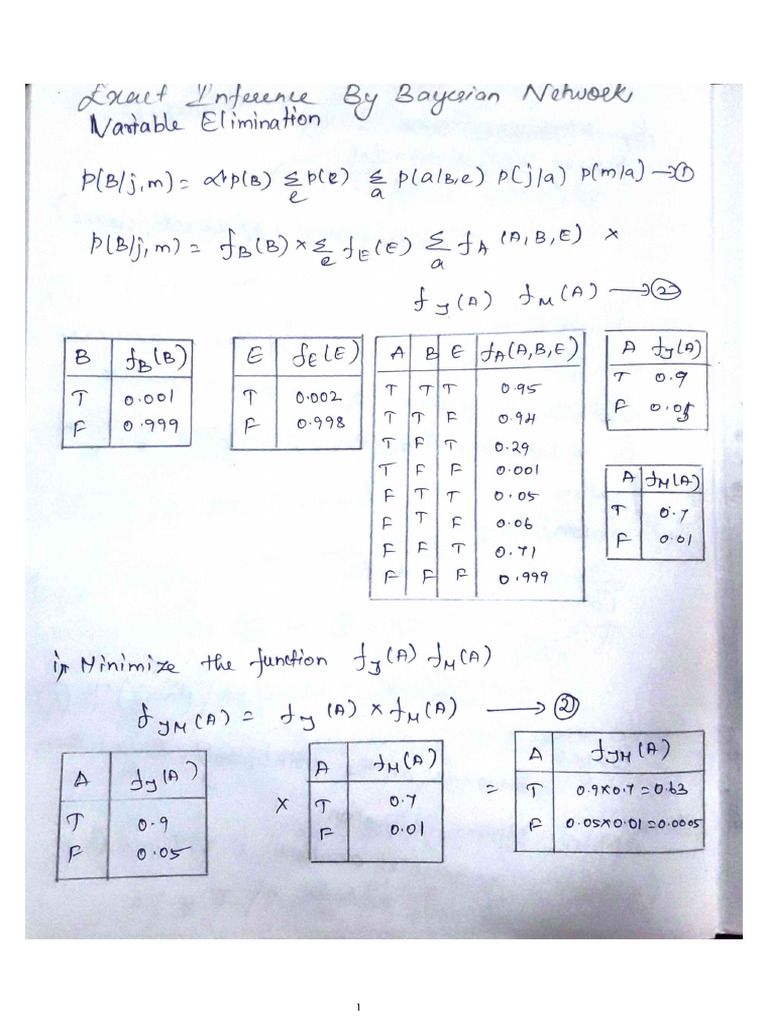 Exact Inference By Bayesian Network
Variable Elimination
P(B/j,m) = α P(B) Σe P(e) Σa P(a/B,e) P(j/a) P(m/a) → ①
P(B/j,m) = fB(B) × Σe fE(E) Σa fA (A,B,E) ×
fJ(A) fM(A) → ②
B fB(B)
T 0.001
F 0.999
E fE(E)
T 0.002
F 0.998
A B E fA(A,B,E)
T T T 0.95
T T F 0.94
T F T 0.29
T F F 0.001
F T T 0.05
F T F 0.06
F F T 0.71
F F F 0.999
A fJ(A)
T 0.9
F 0.05
A fM(A)
T 0.7
F 0.01
i) Minimize the function fJ(A) fM(A)
fJM(A) = fJ(A) × fM(A) → ②
A fJ(A)
T 0.9
F 0.05
×
A fM(A)
T 0.7
F 0.01
=
A fJM(A)
T 0.9×0.7=0.63
F 0.05×0.01=0.0005
1